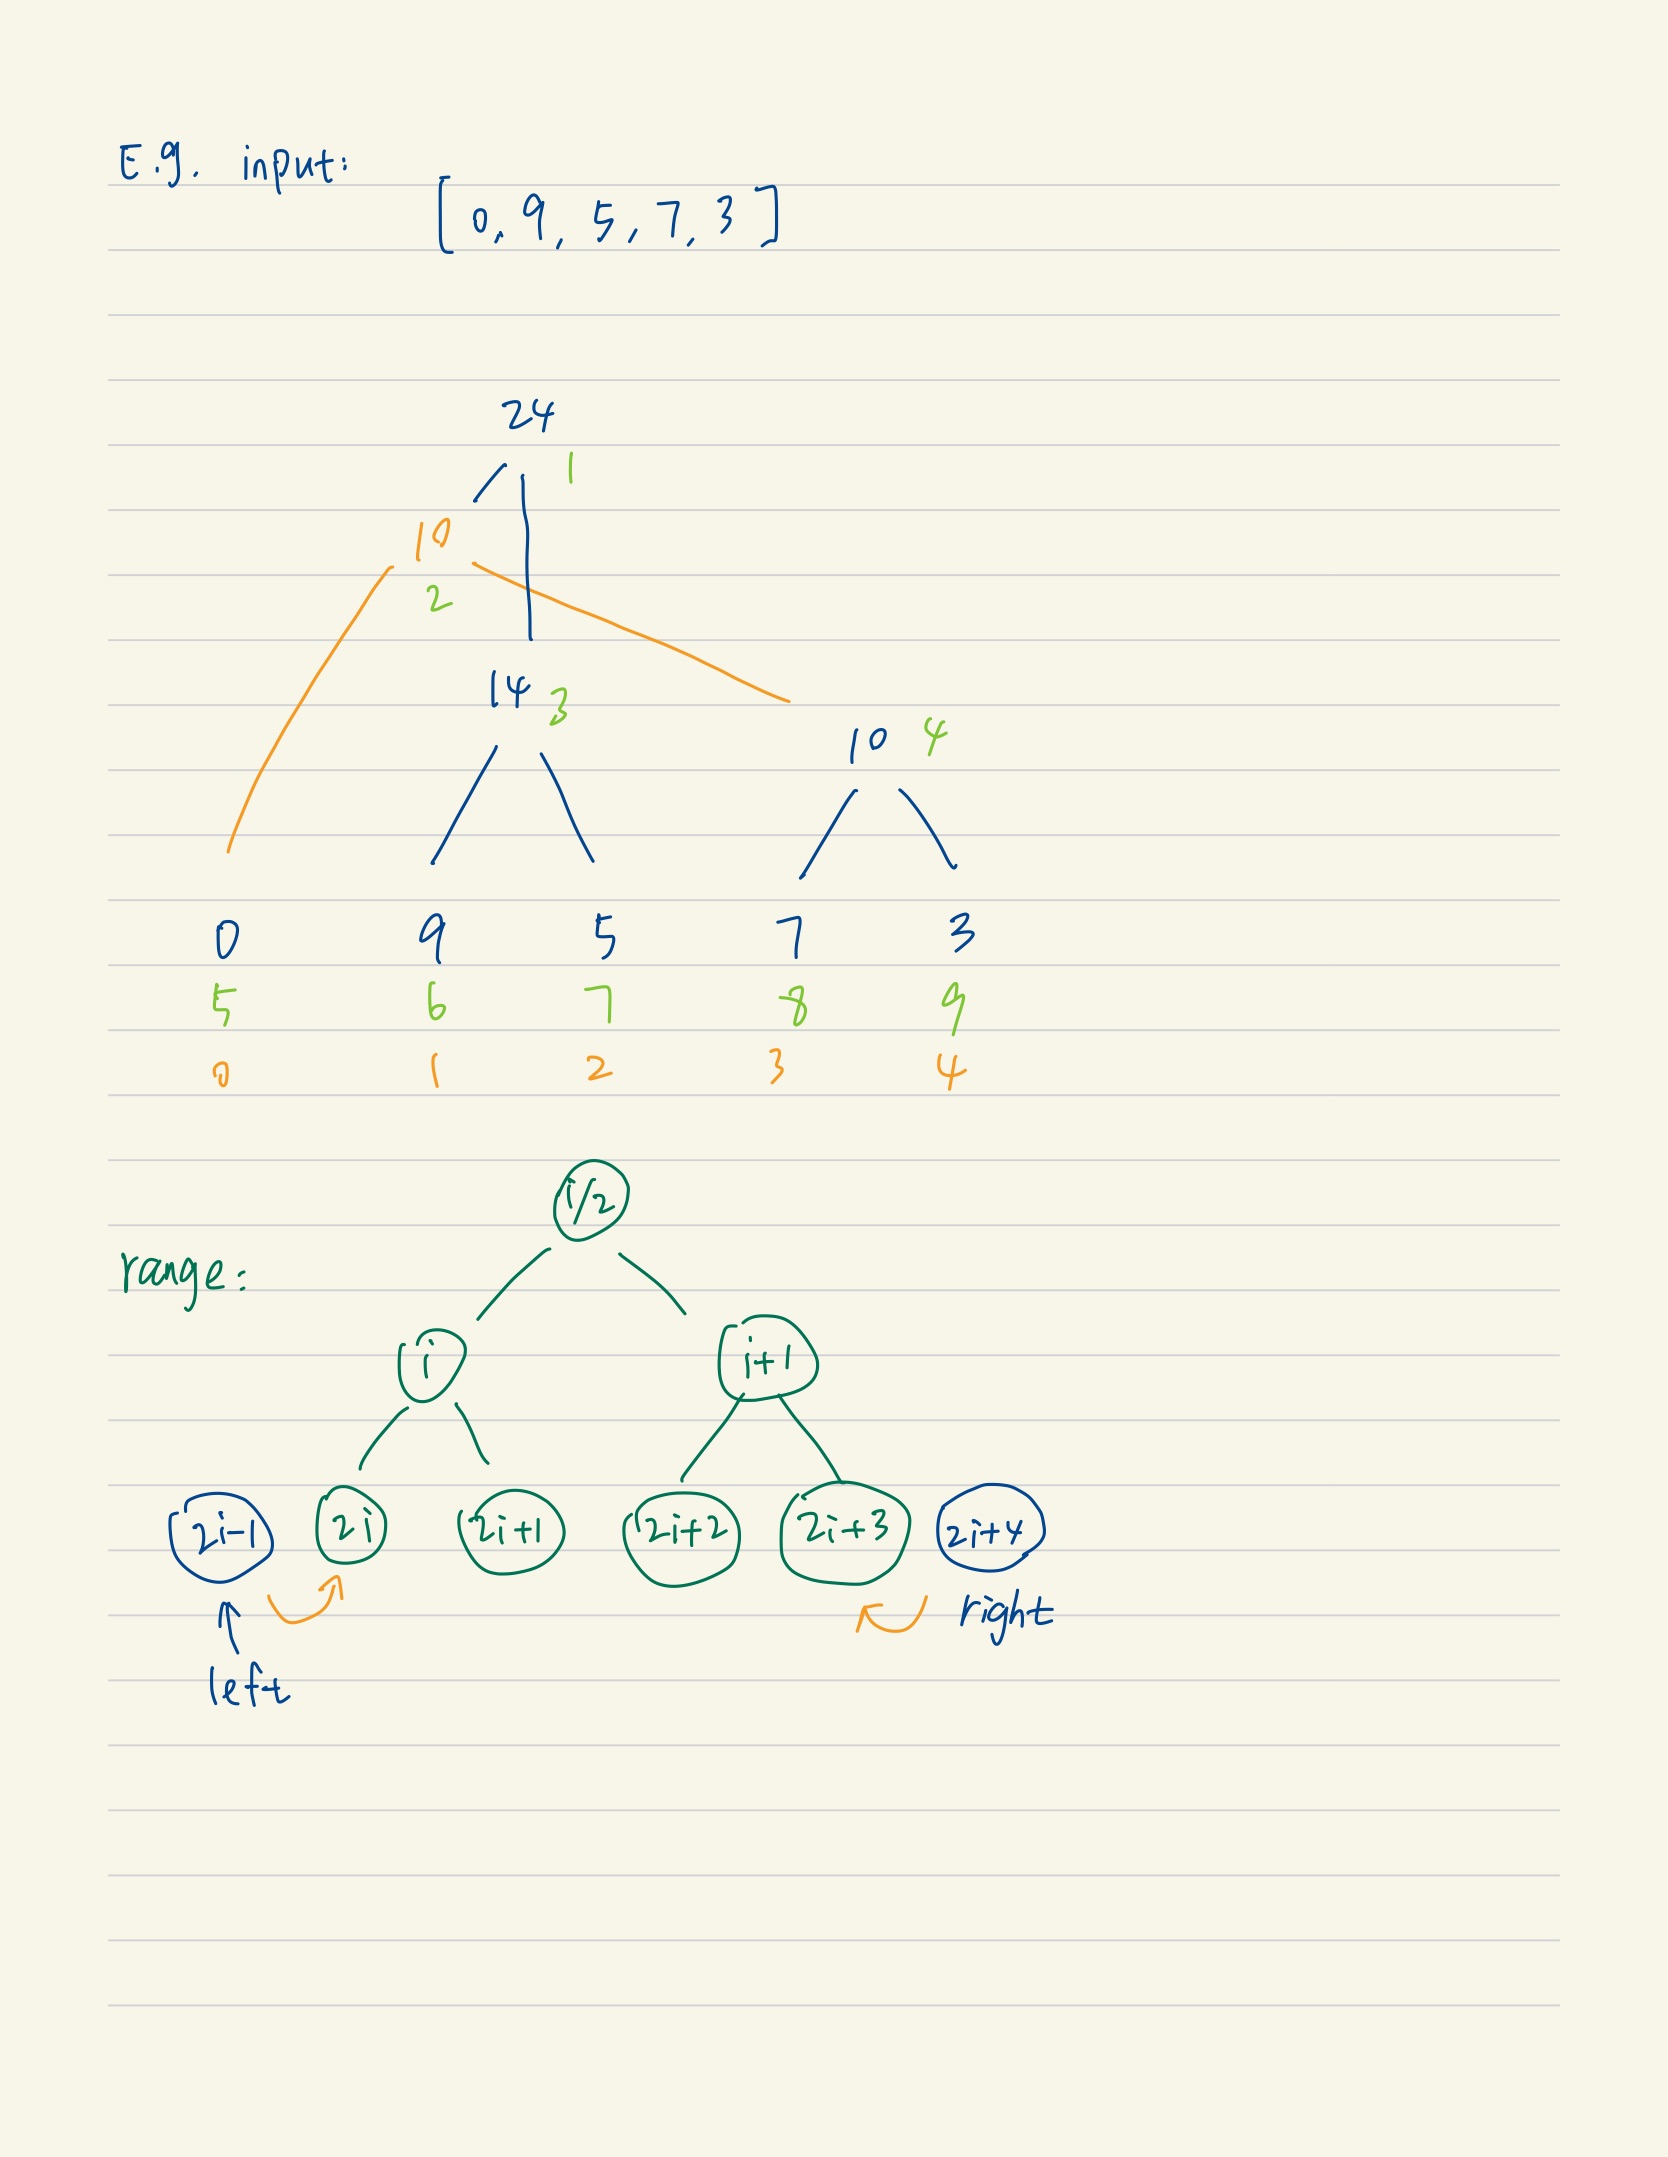 E.g. input:
[0, 9, 5, 7, 3]
24
1
10
2
14 3
10 4
0 9 5 7 3
5 6 7 8 9
0 1 2 3 4
i/2
range:
i i+1
2i-1 2i 2i+1 2i+2 2i+3 2i+4
right
left